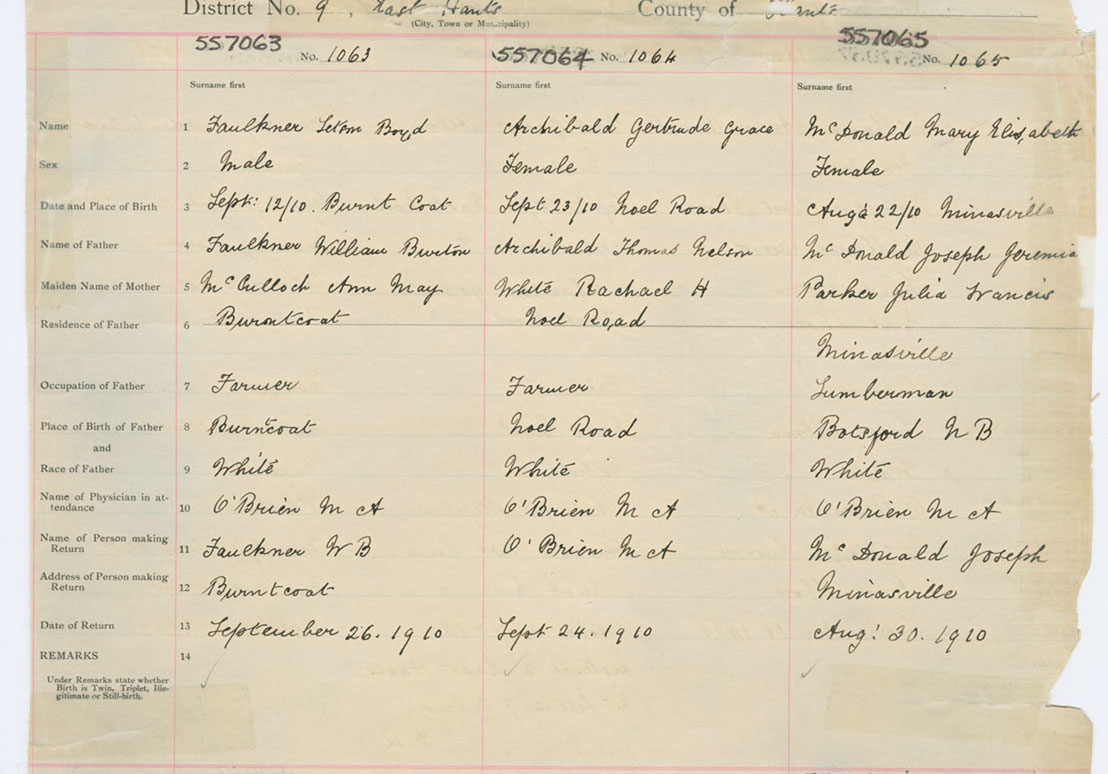 District No. 9, East Hants County of Hants
(City, Town or Municipality)
557063 No. 1063 557064 No. 1064 557065 No. 1065
Surname first Surname first Surname first
Name 1 Faulkner Boyd Archibald Gertrude Grace McDonald Mary Elisabeth
Sex 2 Male Female Female
Date and Place of Birth 3 Sept: 12/10. Burnt Coat Sept 23/10 Noel Road Aug 22/10 Minasville
Name of Father 4 Faulkner William Burton Archibald Thomas Nelson McDonald Joseph Jeremia
Maiden Name of Mother 5 McCulloch Ann May White Rachael H Parker Julia Francis
Residence of Father 6 Burntcoat Noel Road
Minasville
Occupation of Father 7 Farmer Farmer Lumberman
Place of Birth of Father 8 Burncoat Noel Road Botsford N B
and
Race of Father 9 White White White
Name of Physician in at-
tendance 10 O'Brien M A O'Brien M A O'Brien M A
Name of Person making
Return 11 Faulkner W B O'Brien M A McDonald Joseph
Address of Person making
Return 12 Burntcoat Minasville
Date of Return 13 September 26. 1910 Sept 24. 1910 Aug: 30. 1910
REMARKS 14
Under Remarks state whether
Birth is Twin, Triplet, Ille-
gitimate or Still-birth.